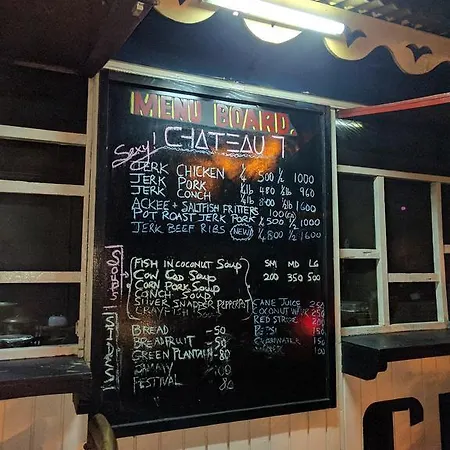 MENU BOARD.
Sexy! CHATEAU 7
JERK CHICKEN ¼ 500 ½ 1000
JERK PORK ¼lb 480 ½lb 960
JERK CONCH ¼lb 800 ½lb 1600
ACKEE + SALTFISH FRITTERS 100
POT ROAST JERK PORK ¼ 500 ½ 1000
JERK BEEF RIBS (NEW) ¼ 800 ½ 1600
FISH IN COCONUT SOUP SM MD LG
COW COD SOUP 200 350 500
CORN PORK SOUP
CONCH SOUP
SILVER SNAPPER
CANE JUICE 250
COCONUT 250
RED STRIPE
PEPSI 150
150
BREAD -50
BREADFRUIT -50
GREEN PLANTAIN -80
BAMMY
FESTIVAL 80